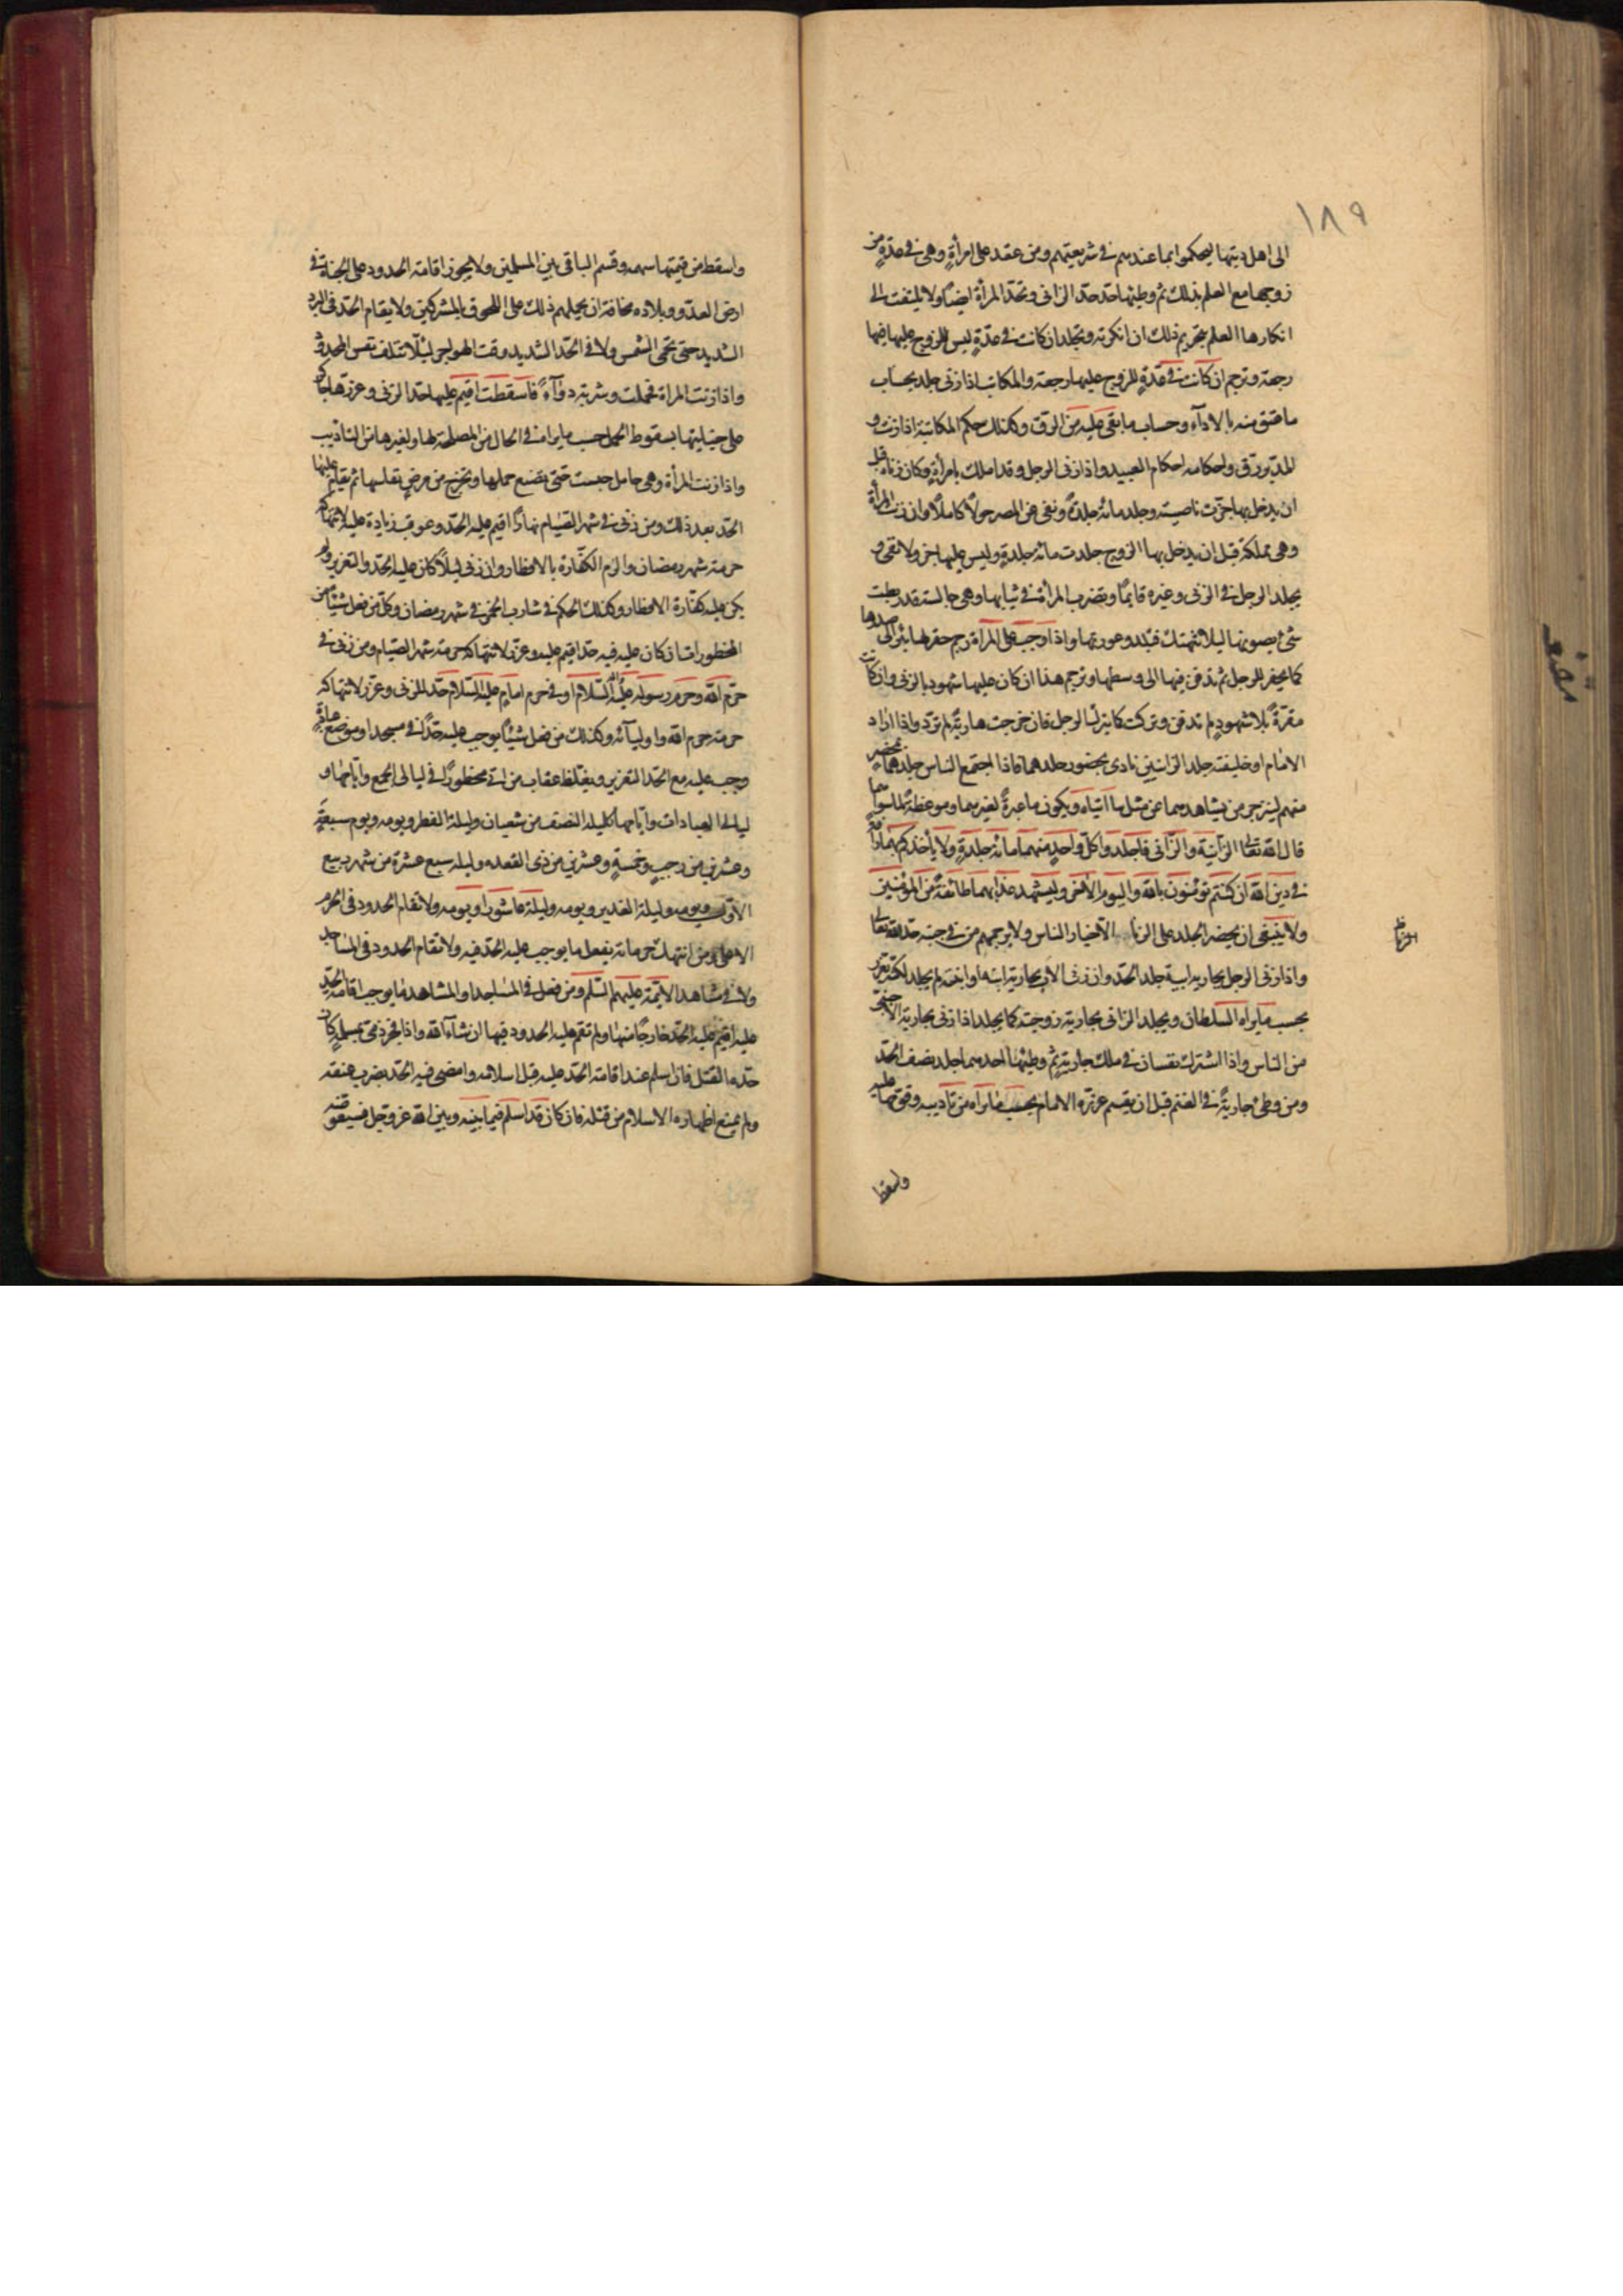 ١٨٩
الى اهل دينها ليحكموا بما عندهم في شريعتهم ومن عقد على امرأةٍ وهي في عدّةٍ من
زوجها مع العلم بذلك ثم وطئها حدّ حدّ الزاني وتحدّ المرأة ايضًا ولا يلتفت الى
انكارها العلم بتحريم ذلك ان انكرته وتجلد ان كانت في عدّةٍ ليس للزوج عليها فيها
رجعة وترجم ان كانت في عدّةٍ للزوج عليها رجعة والمكاتب اذا زنى جلد بحساب
ما عتق منه بالاداء وحساب ما بقي عليه من الرق وكذلك حكم المكاتبة اذا زنت و
المدبر رق واحكامه احكام العبيد واذا زنى الرجل وقد املك بامرأةٍ وكان زناه قبل
ان يدخل بها جزت ناصيته وجلد مائة جلدةً ونفي عن المصر حولًا كاملًا وان زنت المرأة
وهي مملكة قبل ان يدخل بها الزوج جلدت مائة جلدةٍ وليس عليها جز ولا نفي و
يجلد الرجل في الزنى وغيره قايمًا وتضرب المرأة في ثيابها وهي جالسة قد ربطت
شيء يصونها ليلا تنهتك فتبدو عورتها واذا وجب على المرأة رجم حفر لها بئر الى صدرها
كما يحفر للرجل ثم تدفن فيها الى وسطها وترجم هذا ان كان عليها شهود بالزنى وان كانت
مقرّةً بلا شهودٍ لم تدفن وتركت كما يترك الرجل فان خرجت هاربةً لم تردّ واذا اراد
الامام او خليفته جلد الزانيين نادى بحضور جلدهما فاذا اجتمع الناس جلدهما بمحضرٍ
منهم لينزجر من يشاهدهما عن مثل ما اتياه ويكونا عبرةً لغيرهما وموعظةً لما سواهما
قال الله تعالى الزانية والزاني فاجلدوا كلّ واحدٍ منهما مائة جلدةٍ ولا يأخذكم بهما رأفة
في دين الله ان كنتم تؤمنون بالله واليوم الاخر وليشهد عذابهما طائفةٌ من المؤمنين
ولا ينبغي ان يحضر الجلد على الزنا الا خيار الناس ولا يرجمهم من في جنبه حد لله تعالى
واذا زنى الرجل بجارية ابيه جلد الحدّ وان زنى الاب بجارية ابنه او ابنته لم يجلد لكنّه يعزر
بحسب ما يراه السلطان ويجلد الزاني بجارية زوجته كما يجلد اذا زنى بجارية الاجنبي
من الناس واذا اشترك نفسان في ملك جاريةٍ ثم وطئها احدهما جلد نصف الحدّ
ومن وطئ جاريةً في المغنم قبل ان يقسم عزره الامام بحسب ما يراه من تاديبه وقومها عليه
واسقط
واسقط من قيمتها سهمه وقسم الباقي بين المسلمين ولا يجوز اقامة الحدود على الجناة في
ارض العدو وبلاده مخافة ان يحملهم ذلك على اللحوق بالمشركين ولا يقام الحدّ في البرد
الشديد حتى تحمى الشمس ولا في الحرّ الشديد وقت الهواجر ليلّا تتلف نفس المحدود
واذا زنت المراة فحملت وشربت دوآءً فاسقطت اقيم عليها حدّ الزنى وعزرها الحاكم
على جنايتها بسقوط الحمل حسب ما يراه في الحال من المصلحة لها ولغيرها من التاديب
واذا زنت المرأة وهي حامل حبست حتى تضع حملها وتخرج من مرض نفاسها ثم يقام عليها
الحدّ بعد ذلك ومن زنى في شهر الصيام نهارًا اقيم عليه الحدّ وعوقب زيادة عليه لانتهاكه
حرمة شهر رمضان والزم الكفّارة بالافطار وان زنى ليلًا كان عليه الحدّ والتعزير ولم
يكن عليه كفّارة الافطار وكذلك الحكم في شارب الخمر في شهر رمضان وكلّ من فعل شيئًا من
المحظورات ان كان عليه فيه حدّ اقيم عليه وعزّر لانتهاكه حرمة شهر الصيام ومن زنى في
حرم الله وحرم رسوله عليه السّلام او في حرم امامٍ عليه السّلام حدّ للزنى وعزّر لانتهاكه
حرمة حرم الله واوليآئه وكذلك من فعل شيئًا يوجب عليه حدًّا في مسجد او موضع عبادةٍ
وجب عليه مع الحدّ التعزير ويغلظ عقاب من اتى محظورًا في ليالي الجمع وايّامها و
ليالي العبادات وايّامها كليلة النصف من شعبان وليلة الفطر ويومه ويوم سبعةٍ
وعشرين من رجبٍ وخمسةٍ وعشرين من ذي القعدة وليلة سبع عشرة من شهر ربيع
الاوّل ويومه وليلة الغدير ويومه وليلة عاشورا ويومه ولا تقام الحدود في الحرم
الا على من انتهك حرماته بفعل ما يوجب عليه الحدّ فيه ولا تقام الحدود في المساجد
ولا في مشاهد الائمّة عليهم السّلم ومن فعل في المساجد او المشاهد ما يوجب اقامة الحدّ
عليه اقيم عليه الحدّ خارجًا منها ولم تقم عليه الحدود فيها ان شاء الله واذا فجر ذمي بمسلمةٍ كان
حدّه القتل فان اسلم عند اقامة الحدّ عليه قبل اسلامه وامضى فيه الحدّ بضرب عنقه
ولم يمنع اظهاره الاسلام من قتله فان كان قد اسلم فيما بينه وبين الله عز وجل فسيعوّضه